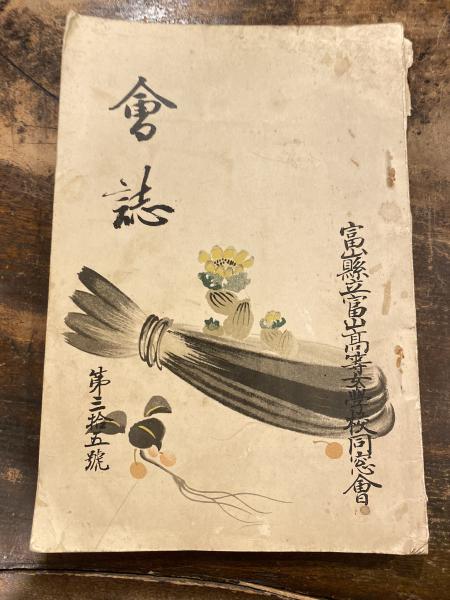 富山縣立富山高等女學校同窓會
會誌
第三拾五號